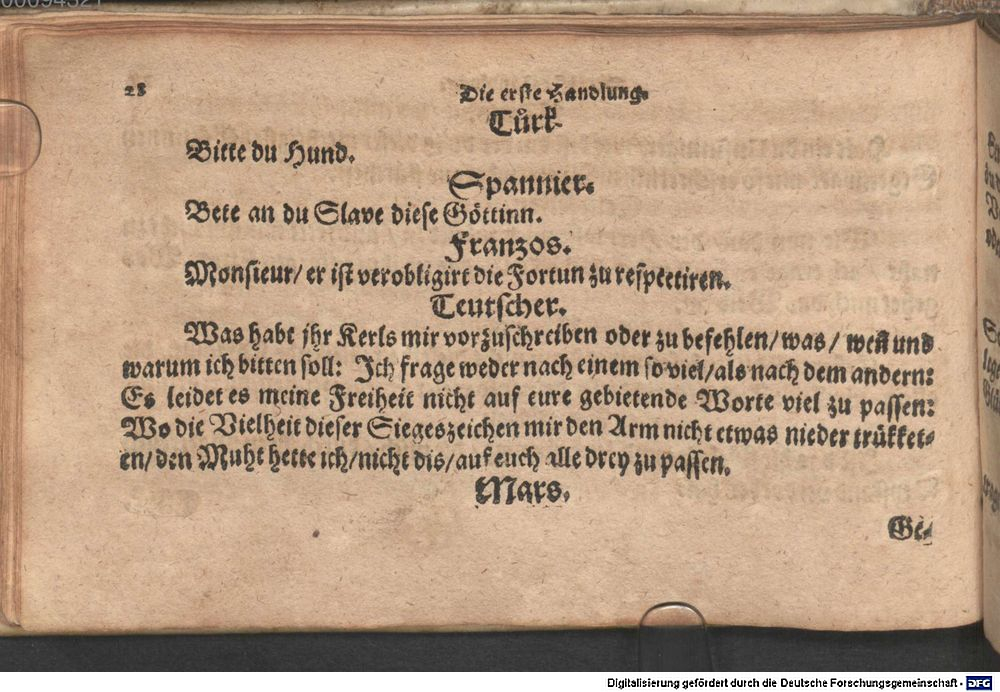 00094321
28 Die erste Handlung.
Tůrk.
Bitte du Hund.
Spannier.
Bete an du Slave diese Göttinn.
Franzos.
Monsieur/ er ist verobligirt die Fortun zu respectiren.
Teutscher.
Was habt jhr Kerls mir vorzuschreiben oder zu befehlen/ was/ wen und
warum ich bitten soll: Jch frage weder nach einem so viel/ als nach dem andern:
Es leidet es meine Freiheit nicht auf eure gebietende Worte viel zu passen:
Wo die Vielheit dieser Siegeszeichen mir den Arm nicht etwas nieder trükket-
en/ den Muht hette ich/ nicht dis/ auf euch alle drey zu passen.
Mars.
Ge-
Digitalisierung gefördert durch die Deutsche Forschungsgemeinschaft - DFG